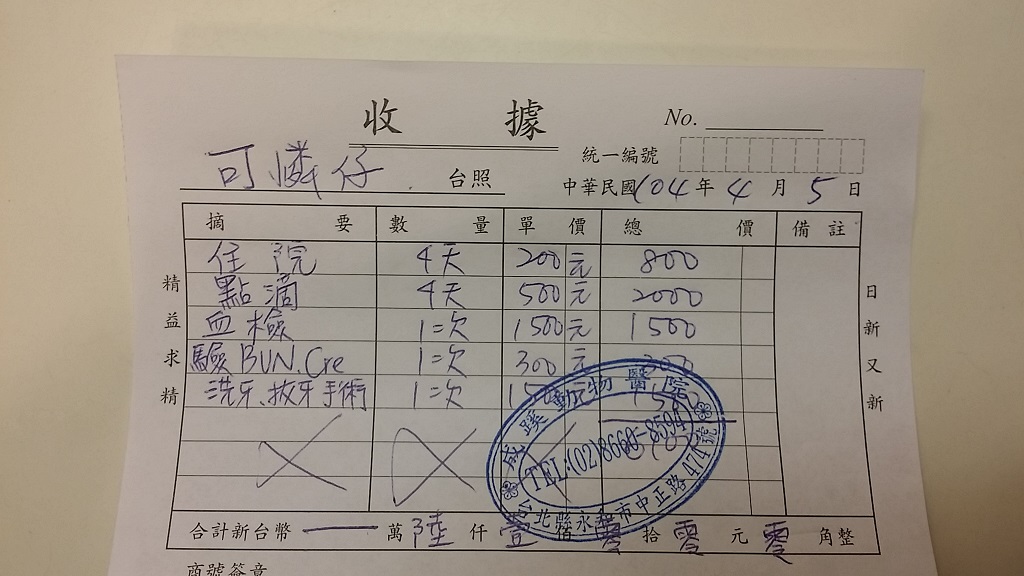 收據
No.
統一編號
可憐仔 台照
中華民國104年4月5日
摘要 數量 單價 總價 備註
住院 4天 200元 800
點滴 4天 500元 2000
血檢 1次 1500元 1500
驗BUN.Cre 1次 300元 300
洗牙、拔牙手術 1次
精益求精
日新又新
動物醫院
TEL:(02)8660-8594
台北縣永和市中正路
合計新台幣 萬陸仟壹佰零拾零元零角整
商號簽章